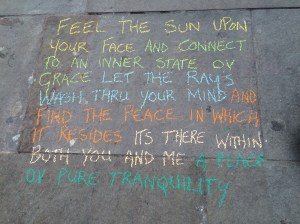 FEEL THE SUN UPON
YOUR FACE AND CONNECT
TO AN INNER STATE OV
GRACE LET THE RAYS
WASH THRU YOUR MIND AND
FIND THE PEACE IN WHICH
IT RESIDES ITS THERE WITHIN
BOTH YOU AND ME A PLACE
OV PURE TRANQUILITY